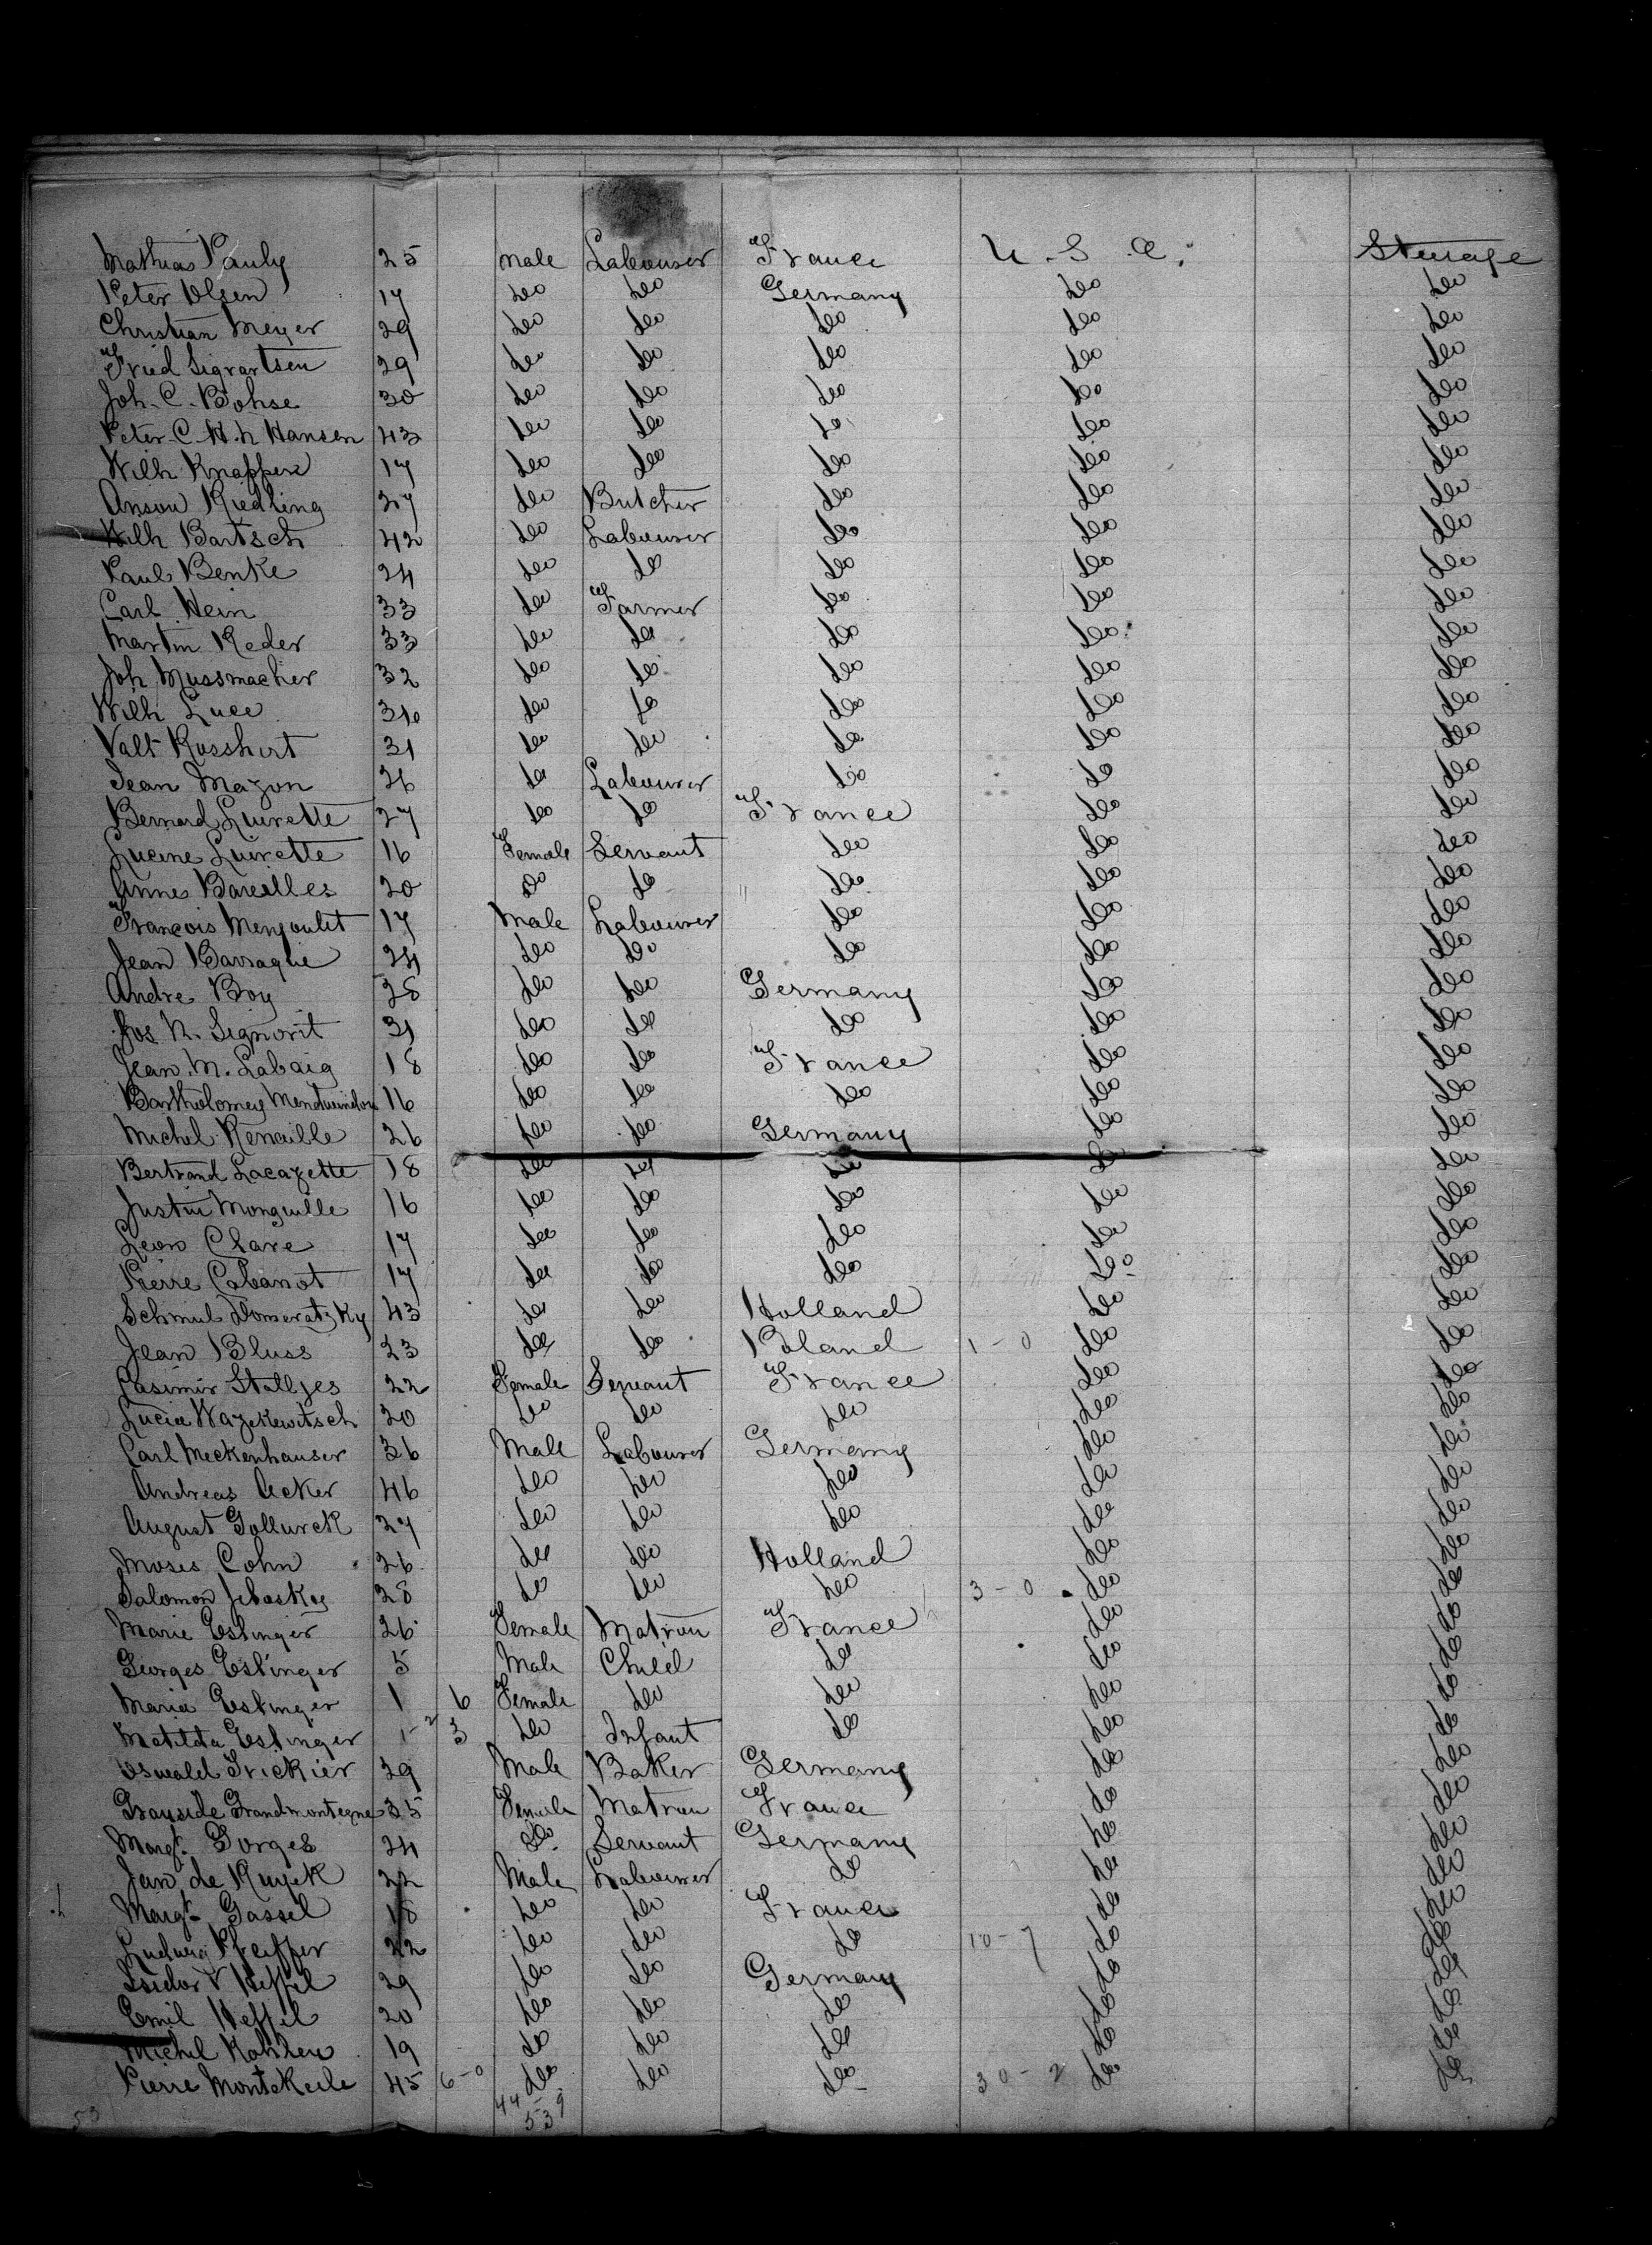 Mathias Pauly 25 Male Labourer France U.S.A. Steerage
Peter Olsen 17 do do Germany do do
Christian Meyer 29 do do do do do
Fried Sigvartsen 29 do do do do do
Joh. C. Bohse 30 do do do do do
Peter C. H. h Hansen 43 do do do do do
Wilh Knapper 17 do do do do do
Riedling 27 do Butcher do do do
Wilh Bartsch 42 do Labourer do do do
Paul Benke 24 do do do do do
Carl Hein 33 do Farmer do do do
Martin Reder 33 do do do do do
Joh Mussmacher 32 do do do do do
Wilh Luce do do do do do
Valt Rosshirt 31 do do do do do
Jean Mazon 26 do Labourer do do do
Bernard Luirette 27 do do France do do
Lucine Luirette 16 Female Servant do do do
Anne Bareilles 20 do do do do do
Francois Menjoulet 17 Male Labourer do do do
Jean Barraque 24 do do do do do
Andre Boy 28 do do Germany do do
Jos N. Signorit 31 do do do do do
Jean M. Labaig 18 do do France do do
Bartholomey 16 do do do do do
Michel Renaille 26 do do Germany do do
Bertrand Lacazette 18 do do do do do
Justin Monguille 16 do do do do do
Leon Clave 17 do do do do do
Pierre Cabanot 17 do do do do do
Schmul Domeratzky 43 do do Holland do do
Jean Bluss 23 do do Poland 1-0 do do
Casimir Stalljes 22 Female Servant France do do
Lucia Wazekewitsch 20 do do do do do
Carl Meckenhauser 36 Male Labourer Germany do do
Andreas Acker 46 do do do do do
August Gollurck 27 do do do do do
Moses Cohn 26 do do Holland do do
Salomon 28 do do do 3-0 do do
Marie Estinger 26 Female Matron France do do
Georges Estinger 5 Male Child do do do
Maria Estinger 1 6 Female do do do do
Matilda Estinger 3 do Infant do do do
Oswald Frickier 39 Male Baker Germany do do
Grandmontagne 35 Female Matron France do do
Margt. Gorges 24 do Servant Germany do do
Jan de Kuyck 22 Male Labourer do do do
Margt. Gassel 18 do do France do do
Ludwig Pfeiffer 22 do do do 10-7 do do
Isidor V Heffel 29 do do Germany do do
Emil Heffel 20 do do do do do
Michel Kohler 19 do do do do do
Pierre Montekeile 45 6-0 do do do 30-2 do do
44-9
53 53